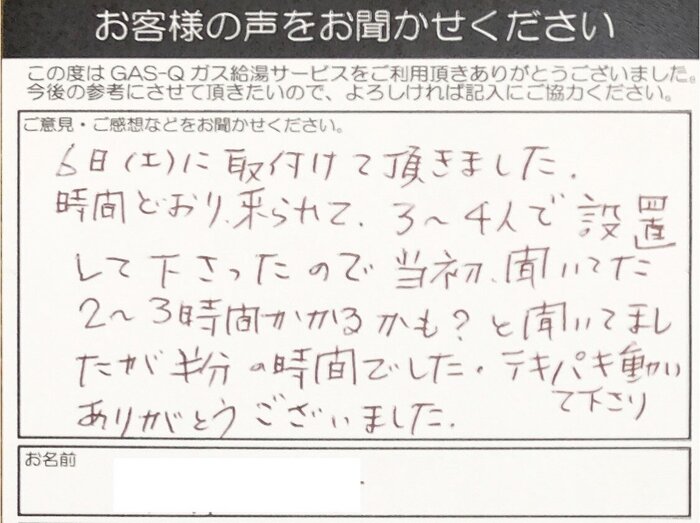 お客様の声をお聞かせください
この度はGAS-Qガス給湯サービスをご利用頂きありがとうございました。
今後の参考にさせて頂きたいので、よろしければ記入にご協力ください。
ご意見・ご感想などをお聞かせください。
6日(土)に取付けて頂きました.
時間どおり、来られて、3〜4人で設置
して下さったので当初、聞いてた
2〜3時間かかるかも?と聞いてまし
たが半分の時間でした。テキパキ動い
て下さり
ありがとうございました.
お名前